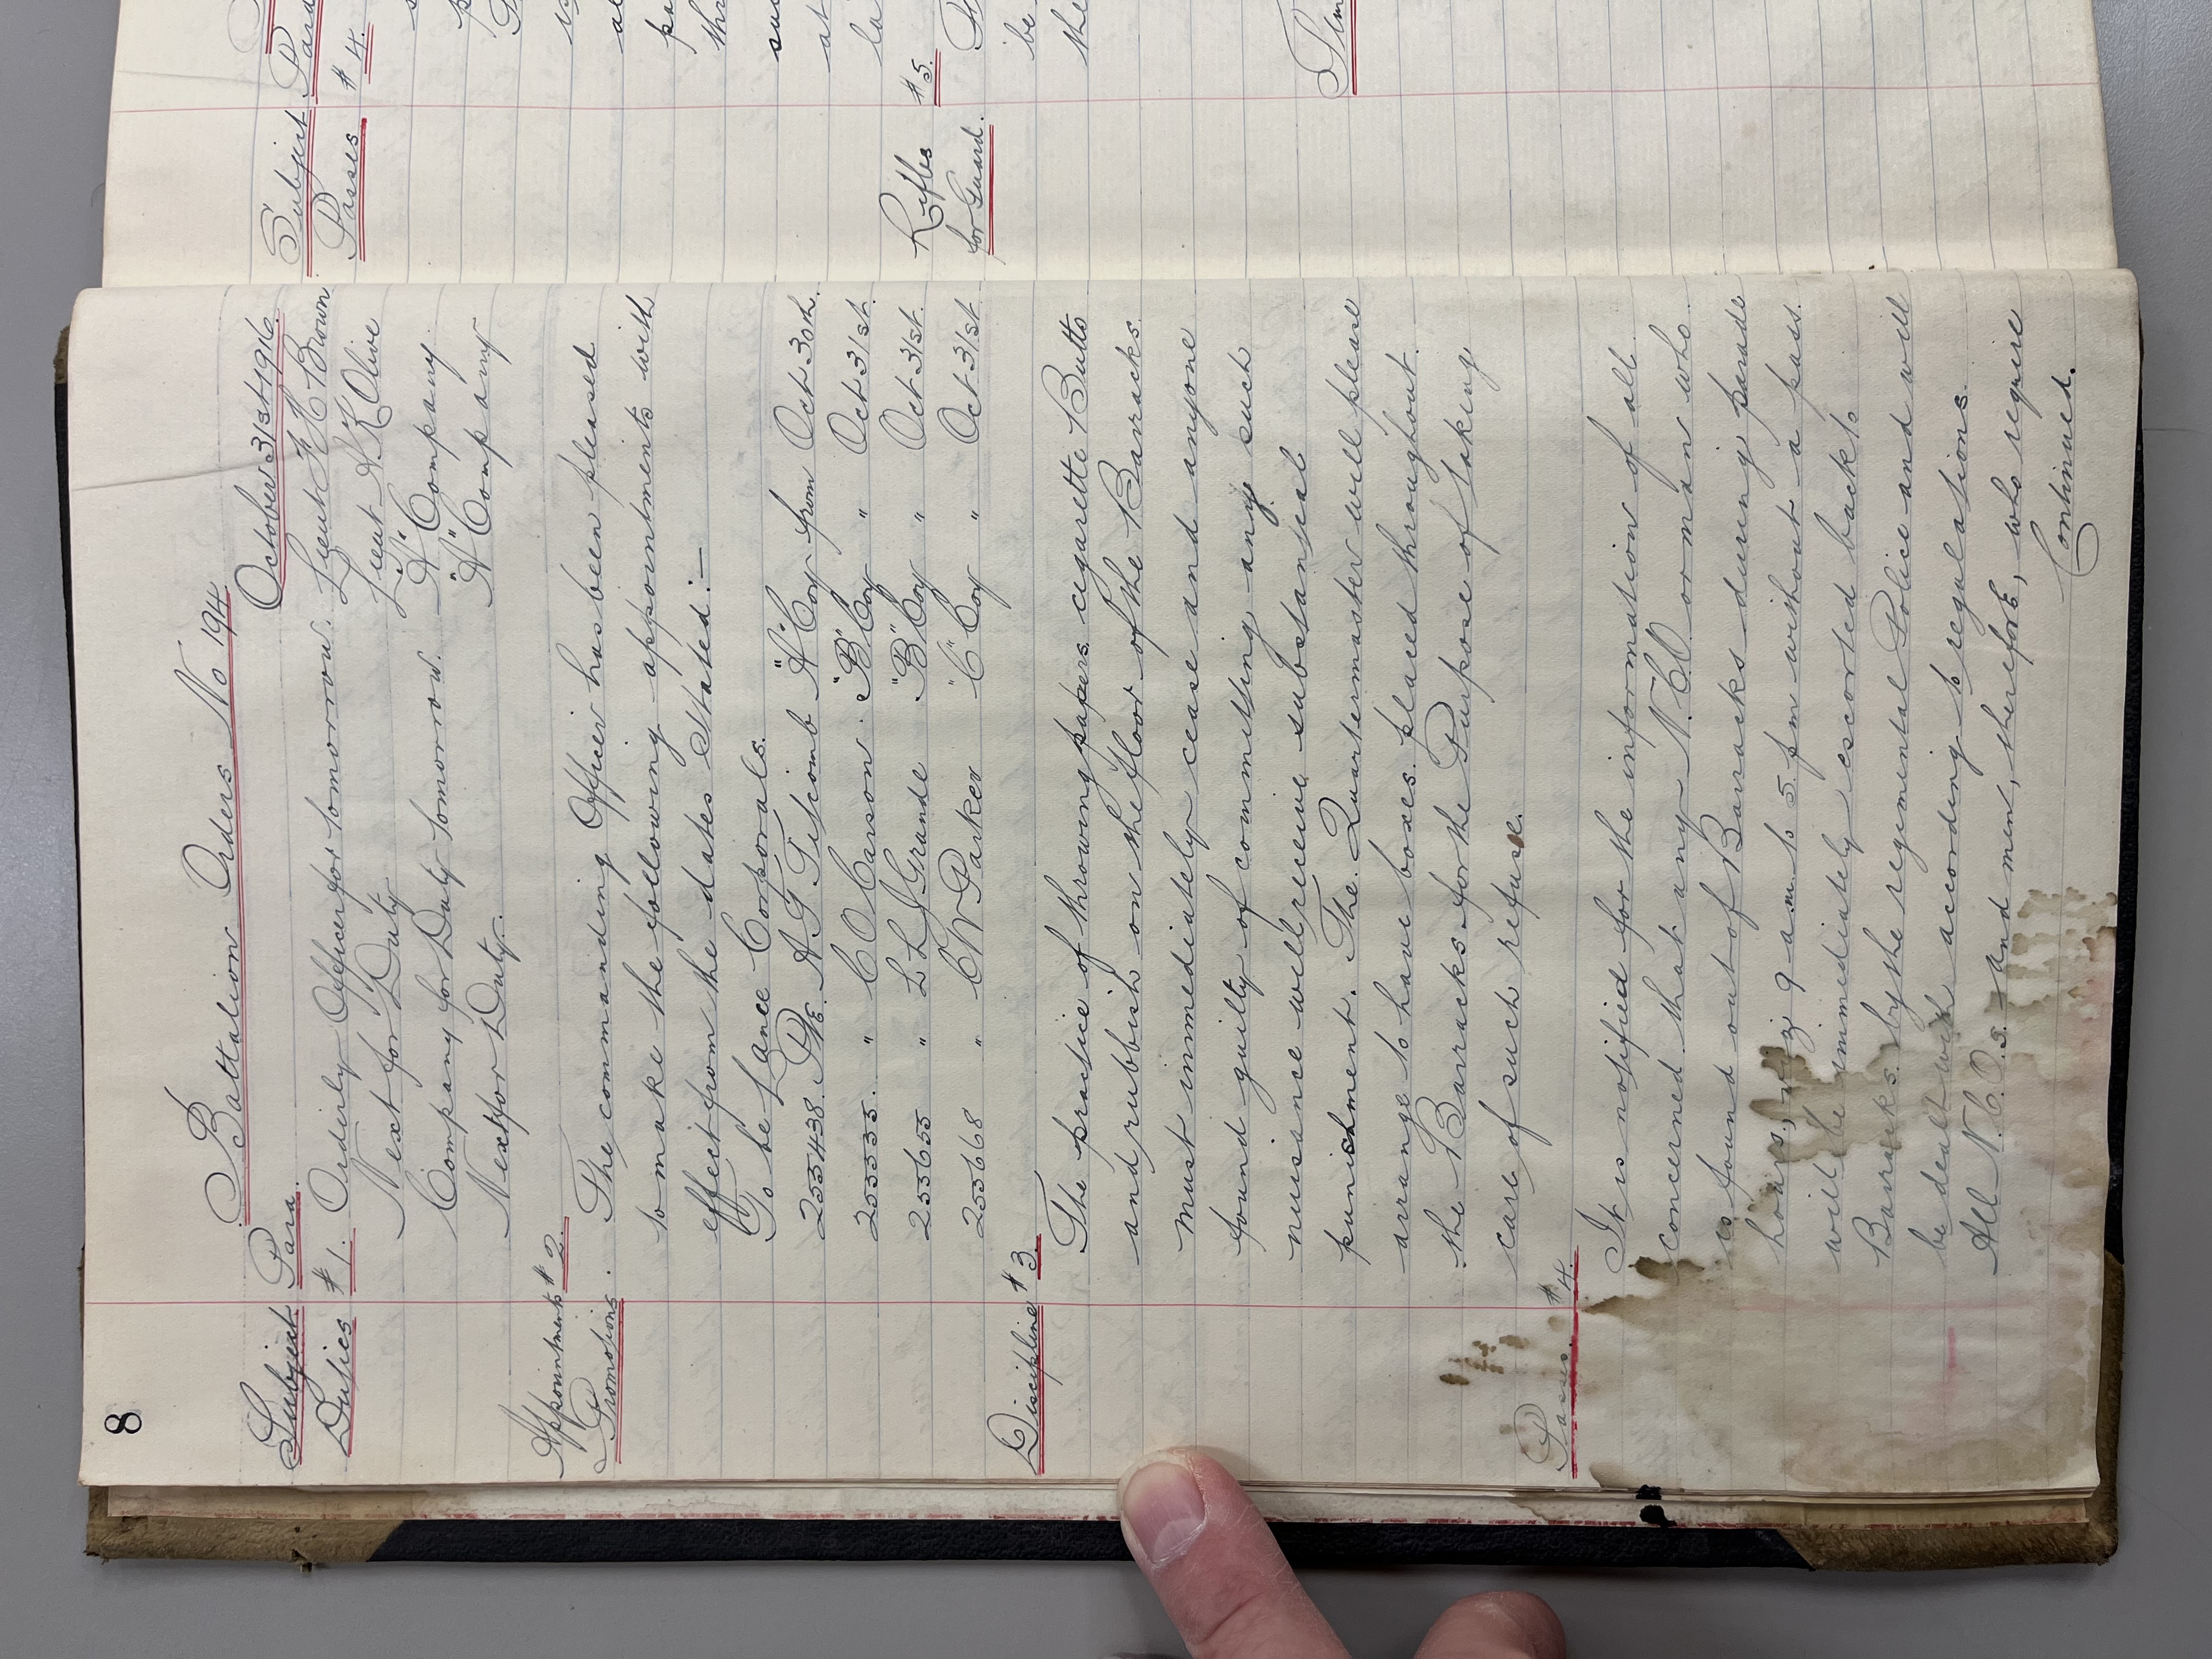 8
Battalion Orders No 194
October 31st 1916.
Subject Para.
Duties #1. Orderly Officer for tomorrow. Lieut H H Brown
Next for Duty Lieut A K Olive
Company for Duty tomorrow. "A" Company
Next for Duty. "A" Company
Appointments #2.
Promotions. The commanding Officer has been pleased
to make the following appointments with
effect from the dates stated:—
To be Lance Corporals.
255438. Pte. A G Titcomb "A" Coy from Oct 30th.
255535. " C O Carson. "B" Coy " Oct 31st.
255655 " L L J Grande "B" Coy " Oct 31st.
255668 " C W Parker "C" Coy " Oct 31st.
Discipline #3.
The practice of throwing papers cigarette Butts
and rubbish on the floor of the Barracks.
must immediately cease and anyone
found guilty of committing any such
nuisance will receive substantial
punishment. The Quartermaster will please
arrange to have boxes placed throughout.
the Barracks for the Purpose of taking
care of such refuse.
Passes. #4.
It is notified for the information of all
concerned that any N.C.O or man who
is found out of Barracks during parade
hours, viz 9 a.m. to 5. pm without a pass.
will be immediately escorted back to
Barracks. by the regimental Police and will
be dealt with according to regulations.
All N.C.O.s. and men, therefore, who require
Continued.
Subject Para
Passes #4.
#5.
Rifles
for Guard.
be
the